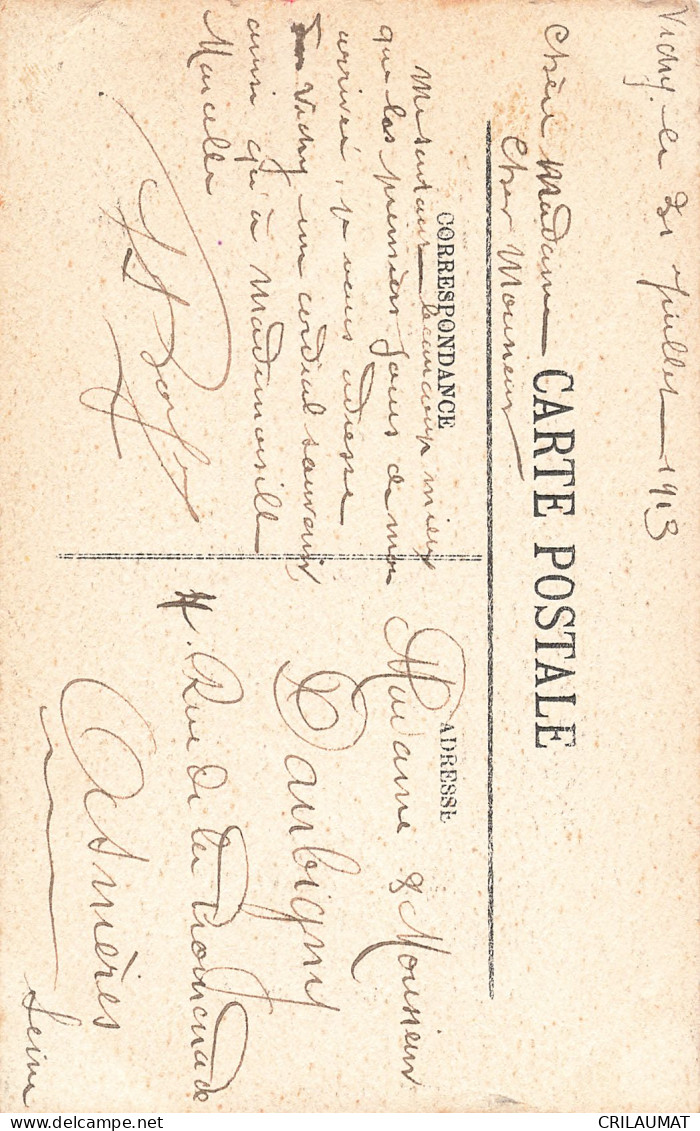 Vichy le 21 Juillet 1913
CARTE POSTALE
Chère Madame
Cher Monsieur
CORRESPONDANCE
Me sentant beaucoup mieux
que les premiers jours de mon
arrivée, je vous adresse
de Vichy un cordial souvenir
ainsi qu'à Mademoiselle
Marcelle
ADRESSE
Madame & Monsieur
Daubigny
4. Rue de la Promenade
Asnières
Seine
CRILAUMAT